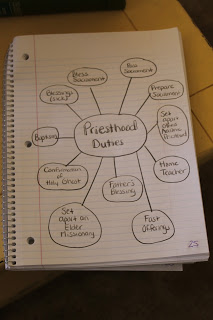 Priesthood
Duties
Bless
Sacrament
Pass
Sacrament
Prepare
Sacrament
Set
apart
Aaronic
Priesthood
Home
Teacher
Fast
Offerings
Father's
Blessing
Set
apart an
Elder
Missionary
Confirmation
of
Holy Ghost
Baptism
Blessings
25